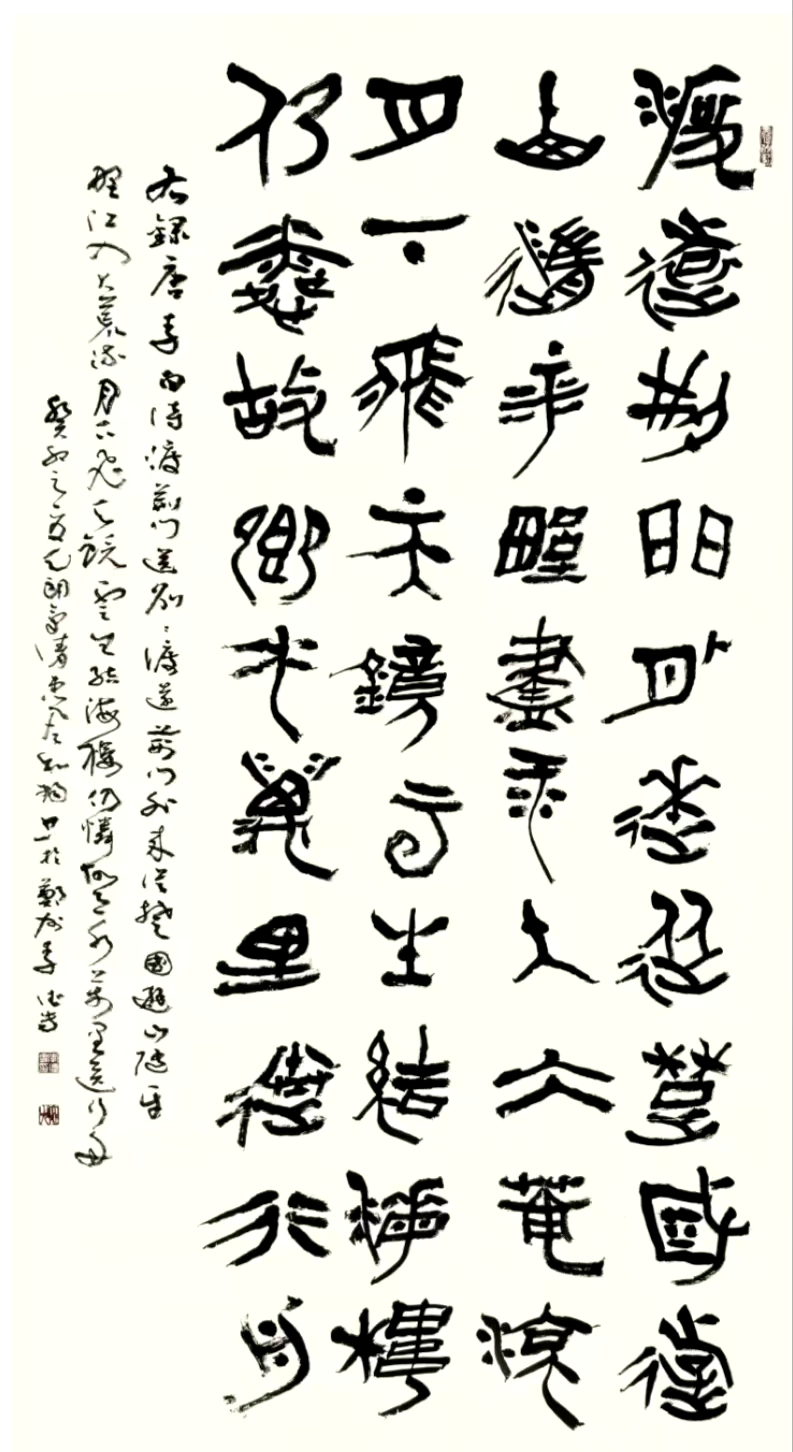 渡遠荊門外來從楚國遊
山隨平野盡江入大荒流
月下飛天鏡雲生結海樓
仍憐故鄉水萬里送行舟
右錄唐李白詩渡荊門送別渡遠荊門外來從楚國遊山隨平
野江入大荒流月下飛天鏡雲生結海樓仍憐故鄉水萬里送行舟
癸卯之夏天朗氣清惠風和暢於鄭州李